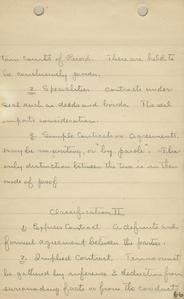 of Record. There are held to
be conclusively proven.
2. Specialties. Contracts under
seal such as deeds and bonds. The seal
imports consideration.
3. Simple Contracts or Agreements.
may be in writing, or "by parole". The
only distinction between the two is in their
mode of proof.
Classification II
1. Express Contract. A definite and
formal agreement between the parties.
2. Implied Contract. Terms must
be gathered by inference & deduction from
surrounding facts or from the conduct